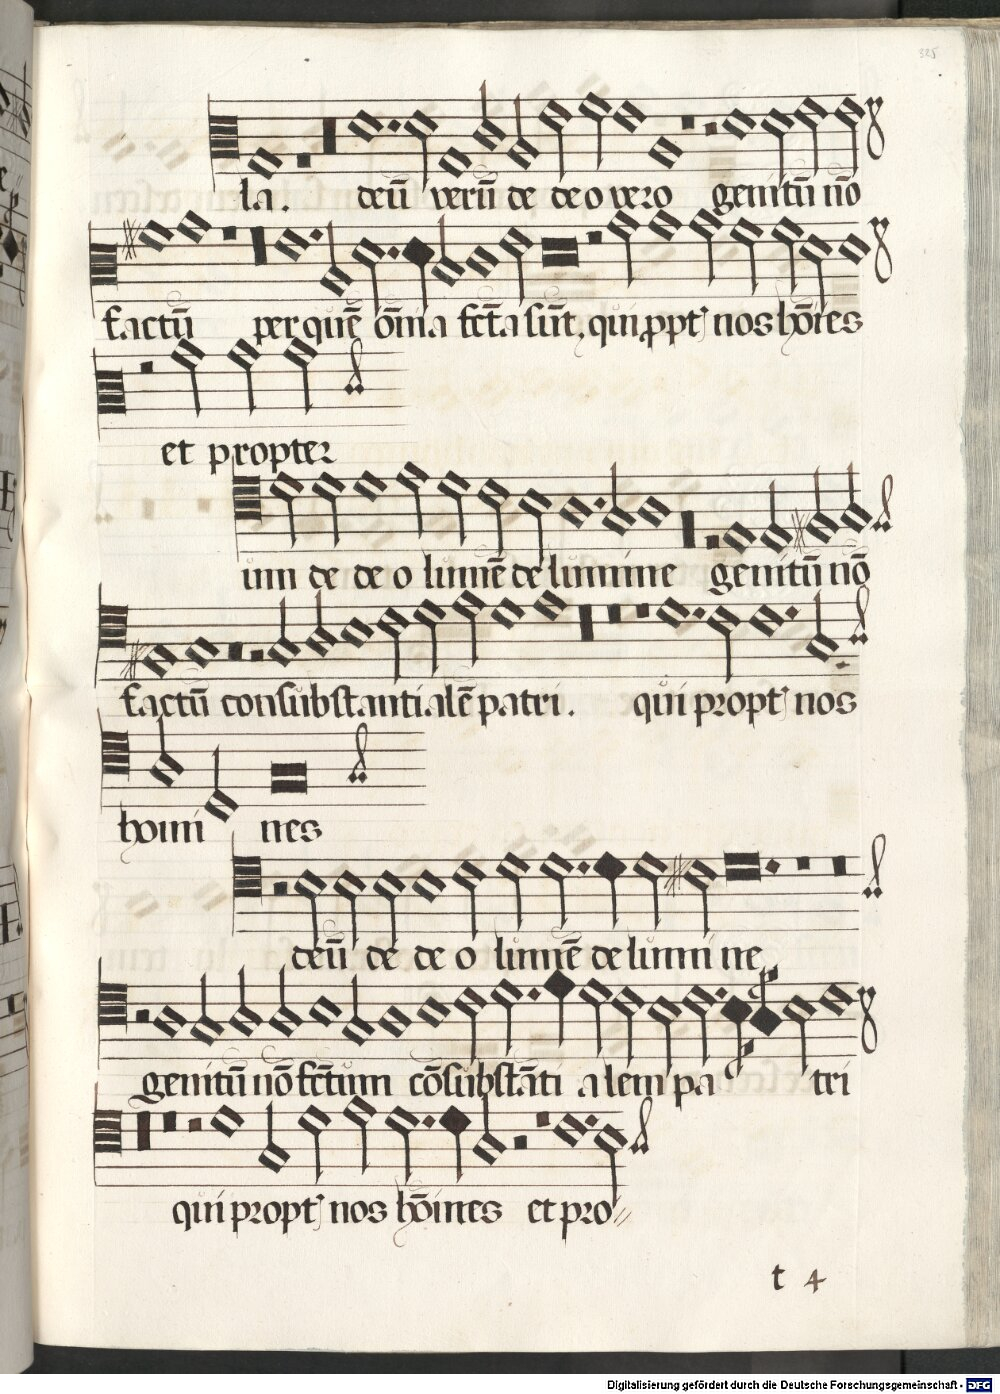 325
la. deū verū de deo vero genitū nō
factū per quē om̄ia fc̄ta sūt, qui ꝓpt' nos hoīes
et propter
um de deo lumē de lumine genitū nō
factū consubstantialē patri. qui propt' nos
homi nes
deū de deo lumē de lumine
genitū nō fc̄tum cōsubstāti alem pa tri
qui propt' nos hōines et pro
t 4
Digitalisierung gefördert durch die Deutsche Forschungsgemeinschaft - DFG